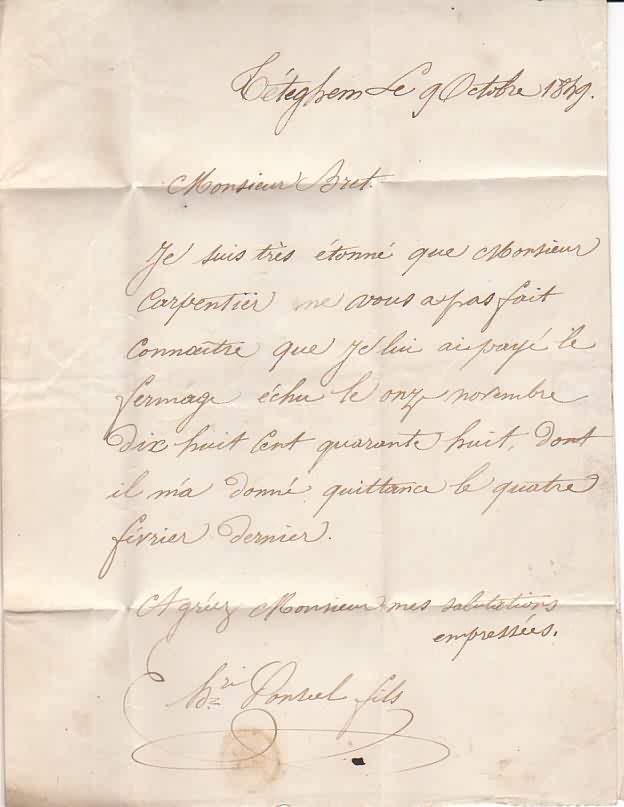 Téteghem Le 9 Octobre 1849.
Monsieur Bret.
Je suis très étonné que Monsieur
Carpentier ne vous a pas fait
connaître que Je lui ai payé le
fermage échu le onze novembre
Dix huit Cent quarante huit, dont
il m'a donné quittance le quatre
février dernier.
Agréez Monsieur mes salutations
empressées.
fils